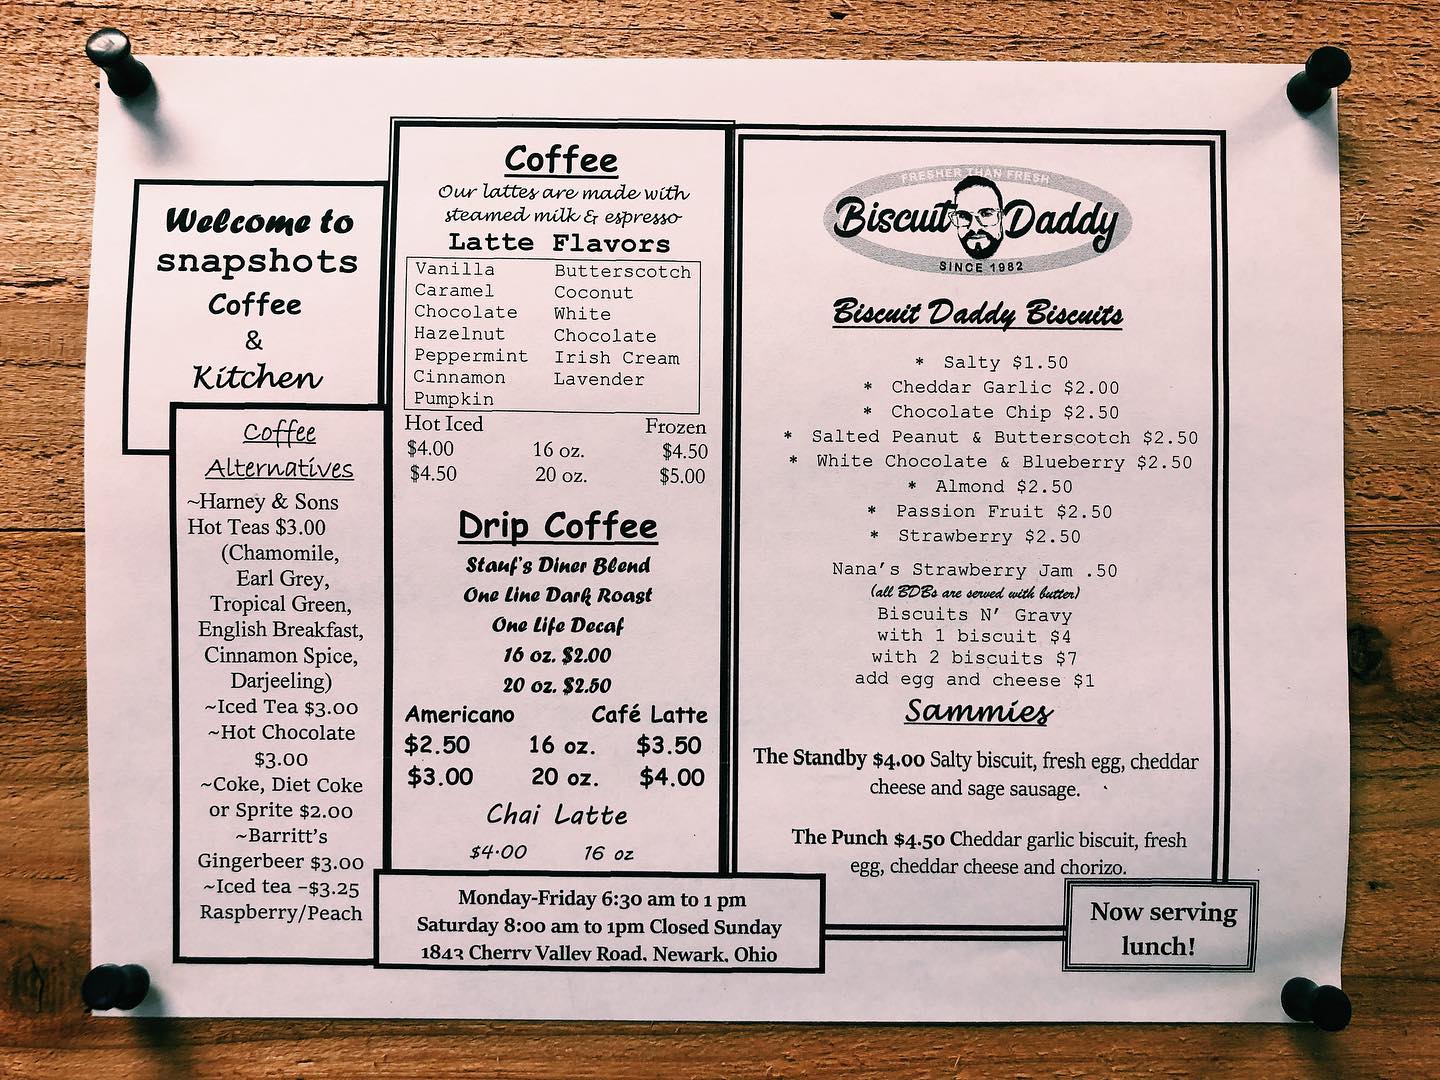 Welcome to
snapshots
Coffee
&
Kitchen
Coffee
Alternatives
~Harney & Sons
Hot Teas $3.00
(Chamomile,
Earl Grey,
Tropical Green,
English Breakfast,
Cinnamon Spice,
Darjeeling)
~Iced Tea $3.00
~Hot Chocolate
$3.00
~Coke, Diet Coke
or Sprite $2.00
~Barritt's
Gingerbeer $3.00
~Iced tea –$3.25
Raspberry/Peach
Coffee
Our lattes are made with
steamed milk & espresso
Latte Flavors
Vanilla
Caramel
Chocolate
Hazelnut
Peppermint
Cinnamon
Pumpkin
Butterscotch
Coconut
White
Chocolate
Irish Cream
Lavender
Hot Iced Frozen
$4.00 16 oz. $4.50
$4.50 20 oz. $5.00
Drip Coffee
Stauf's Diner Blend
One Line Dark Roast
One Life Decaf
16 oz. $2.00
20 oz. $2.50
Americano Café Latte
$2.50 16 oz. $3.50
$3.00 20 oz. $4.00
Chai Latte
$4.00 16 oz
Monday-Friday 6:30 am to 1 pm
Saturday 8:00 am to 1pm Closed Sunday
1843 Cherry Valley Road, Newark, Ohio
FRESHER THAN FRESH
Biscuit Daddy
SINCE 1982
Biscuit Daddy Biscuits
* Salty $1.50
* Cheddar Garlic $2.00
* Chocolate Chip $2.50
* Salted Peanut & Butterscotch $2.50
* White Chocolate & Blueberry $2.50
* Almond $2.50
* Passion Fruit $2.50
* Strawberry $2.50
Nana's Strawberry Jam .50
(all BDBs are served with butter)
Biscuits N' Gravy
with 1 biscuit $4
with 2 biscuits $7
add egg and cheese $1
Sammies
The Standby $4.00 Salty biscuit, fresh egg, cheddar
cheese and sage sausage.
The Punch $4.50 Cheddar garlic biscuit, fresh
egg, cheddar cheese and chorizo.
Now serving
lunch!